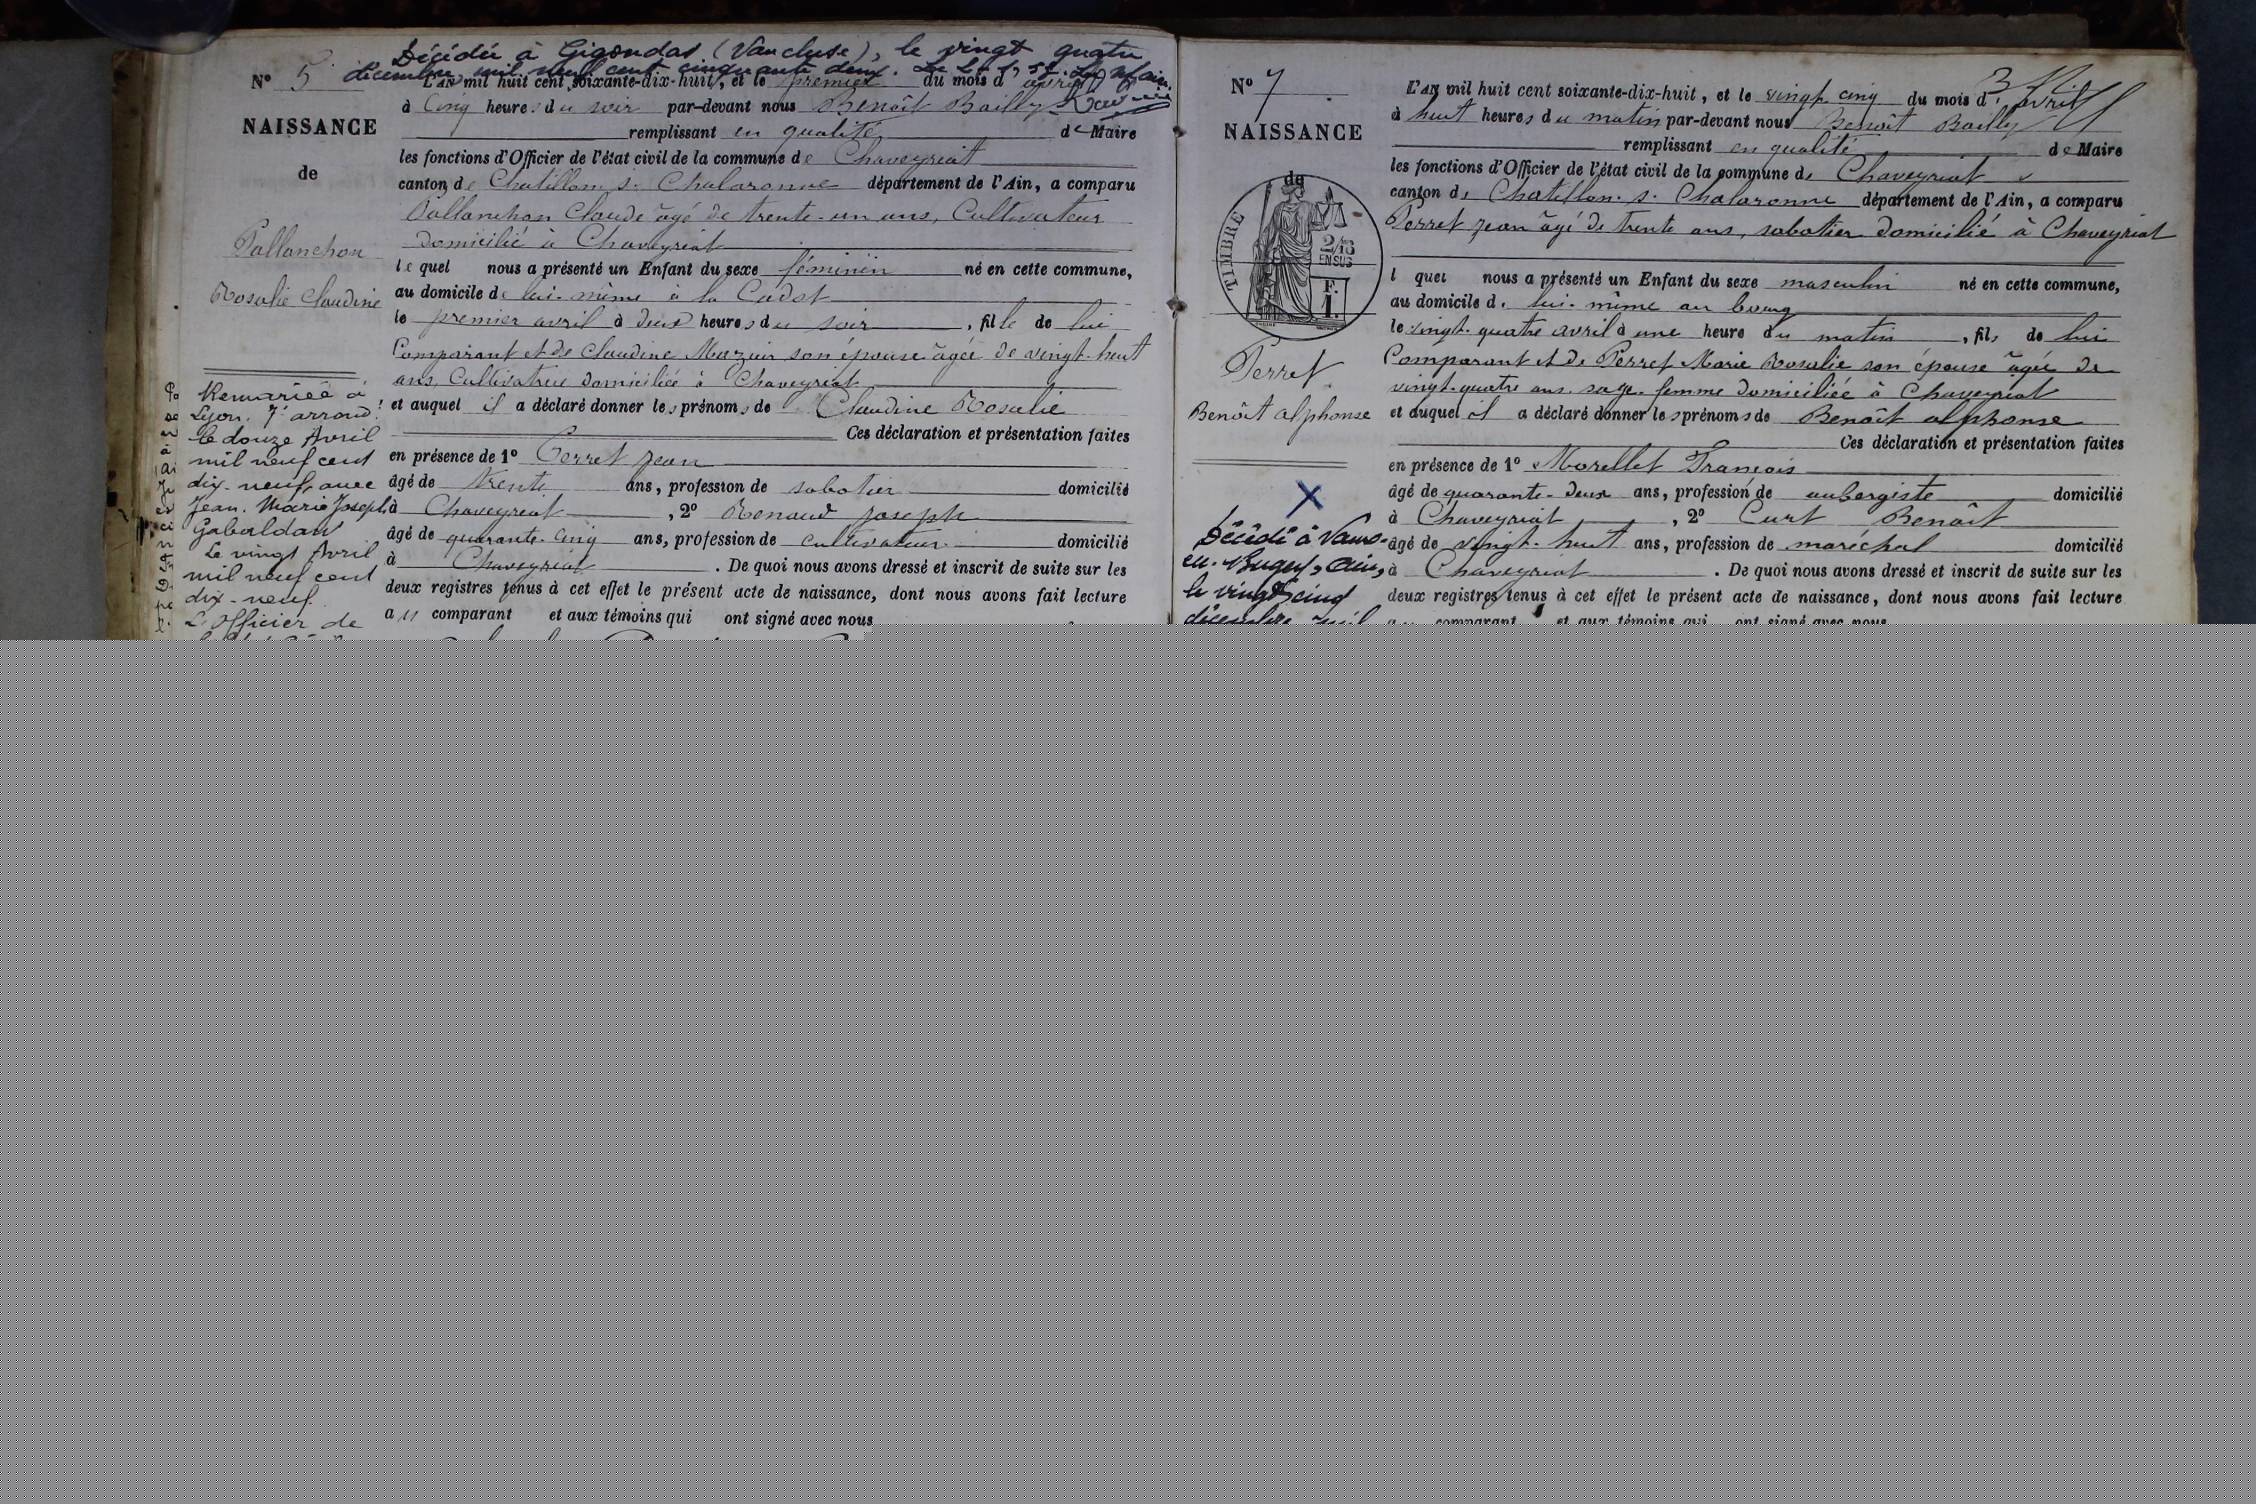 Décédée à Gigondas (Vaucluse), le vingt quatre
décembre mil neuf cent cinquante deux.
N° 5
NAISSANCE
de
Pallanchon
Rosalie Claudine
L'AN mil huit cent soixante-dix-huit, et le premier du mois d'avril
à Cinq heures du soir par-devant nous Benoît Bailly
remplissant en qualité de Maire
les fonctions d'Officier de l'état civil de la commune de Chaveyriat
canton de Chatillon s. Chalaronne département de l'Ain, a comparu
Pallanchon Claude âgé de trente-un ans, Cultivateur
domicilié à Chaveyriat
lequel nous a présenté un Enfant du sexe féminin né en cette commune,
au domicile de lui-même à la Cadot
le premier avril à deux heures du soir, fille de lui
Comparant et de Claudine Mazuir son épouse âgée de vingt-huit
ans, Cultivatrice domiciliée à Chaveyriat
et auquel il a déclaré donner les prénoms de Claudine Rosalie
Ces déclaration et présentation faites
en présence de 1° Perret Jean
âgé de trente ans, profession de sabotier domicilié
à Chaveyriat, 2° Renaud Joseph
âgé de quarante-cinq ans, profession de cultivateur domicilié
à Chaveyriat. De quoi nous avons dressé et inscrit de suite sur les
deux registres tenus à cet effet le présent acte de naissance, dont nous avons fait lecture
au comparant et aux témoins qui ont signé avec nous
Remariée à
Lyon, 7e arrond.t
le douze Avril
mil neuf cent
dix-neuf, avec
Jean-Marie Joseph
Gabaldan
Le vingt Avril
mil neuf cent
dix-neuf.
L'officier de
N° 7
NAISSANCE
de
TIMBRE
2/10
EN SUS
F.
1.
Perret
Benoît Alphonse
L'AN mil huit cent soixante-dix-huit, et le vingt-cinq du mois d'avril
à huit heures du matin par-devant nous Benoît Bailly
remplissant en qualité de Maire
les fonctions d'Officier de l'état civil de la commune de Chaveyriat
canton de Chatillon-s. Chalaronne département de l'Ain, a comparu
Perret Jean âgé de trente ans, sabotier domicilié à Chaveyriat
lequel nous a présenté un Enfant du sexe masculin né en cette commune,
au domicile de lui-même au bourg
le vingt-quatre avril à une heure du matin, fils de lui
Comparant et de Perret Marie Rosalie son épouse âgée de
vingt-quatre ans, sage-femme domiciliée à Chaveyriat
et auquel il a déclaré donner les prénoms de Benoît Alphonse
Ces déclaration et présentation faites
en présence de 1° Morellet François
âgé de quarante-deux ans, profession de aubergiste domicilié
à Chaveyriat, 2° Curt Benoît
âgé de vingt-huit ans, profession de maréchal domicilié
à Chaveyriat. De quoi nous avons dressé et inscrit de suite sur les
deux registres tenus à cet effet le présent acte de naissance, dont nous avons fait lecture
au comparant et aux témoins qui ont signé avec nous
X
Décédé à Vaux-
en-Bugey, Ain,
le vingt cinq
décembre mil